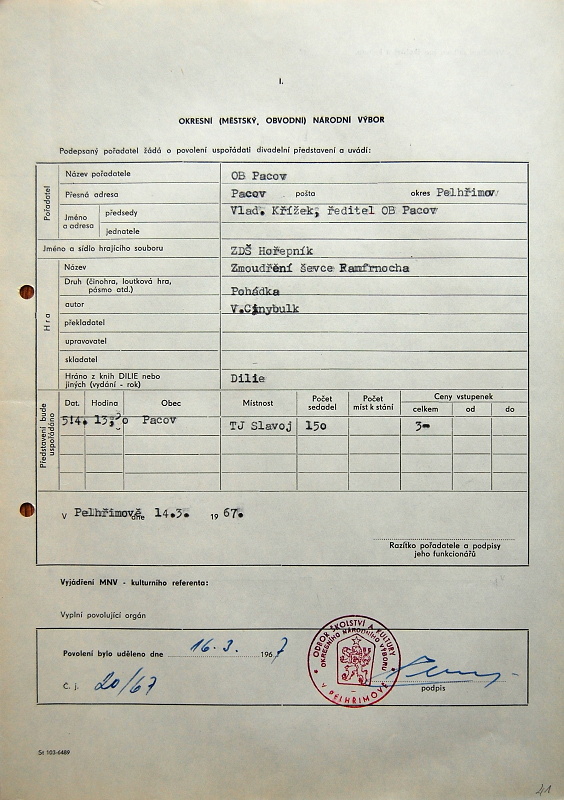 I.
OKRESNÍ (MĚSTSKÝ, OBVODNÍ) NÁRODNÍ VÝBOR
Podepsaný pořadatel žádá o povolení uspořádati divadelní představení a uvádí:
Pořadatel
Název pořadatele OB Pacov
Přesná adresa Pacov pošta okres Pelhřimov
Jméno a adresa předsedy Vlad. Křížek, ředitel OB Pacov
jednatele
Jméno a sídlo hrajícího souboru ZDŠ Hořepník
Hra
Název Zmoudření ševce Ramfrnocha
Druh (činohra, loutková hra, pásmo atd.) Pohádka
autor V.Cinybulk
překladatel
upravovatel
skladatel
Hráno z knih DILIE nebo jiných (vydání - rok) Dilie
Představení bude uspořádáno
Dat. Hodina Obec Místnost Počet sedadel Počet míst k stání Ceny vstupenek
celkem od do
5.4. 13,30 Pacov TJ Slavoj 150 3-
V Pelhřimově dne 14.3. 1967.
Razítko pořadatele a podpisy
jeho funkcionářů
Vyjádření MNV - kulturního referenta:
Vyplní povolující orgán
Povolení bylo uděleno dne 16.3. 1967
Č. j. 20/67
ODBOR ŠKOLSTVÍ A KULTURY
OKRESNÍHO NÁRODNÍHO VÝBORU
V PELHŘIMOVĚ
podpis
Sit 103-6489
41